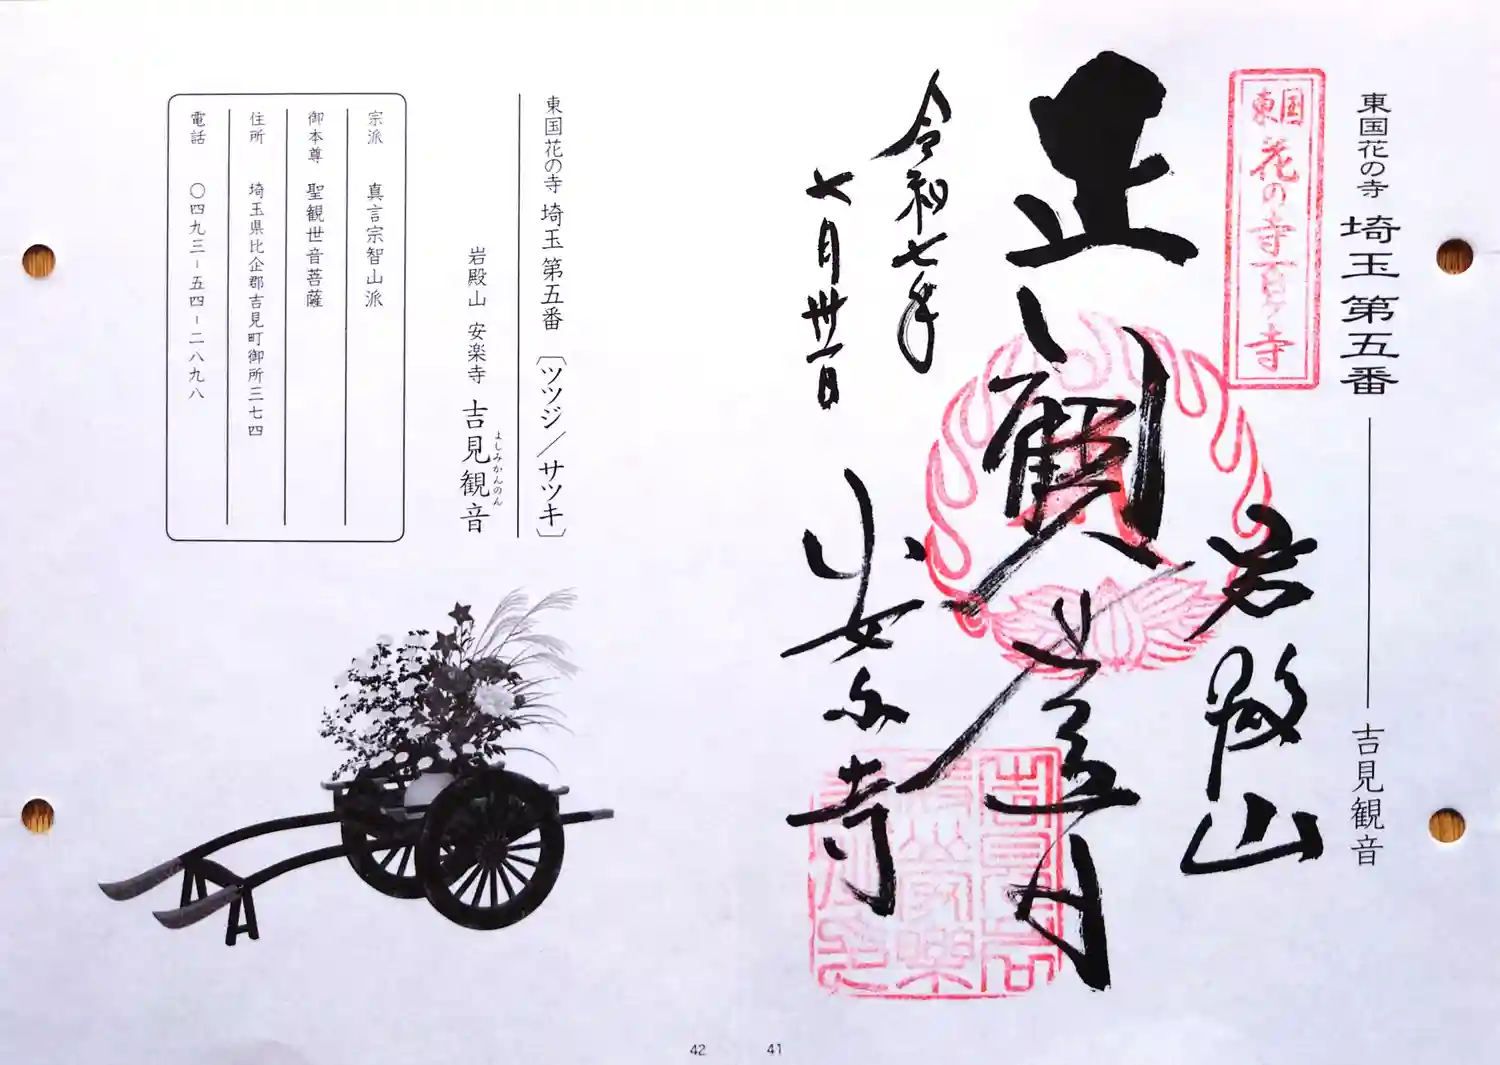 東国花の寺 埼玉 第五番 吉見観音
東国花の寺百ヶ寺
岩殿山
正観世音
令和七年
七月卅一日
安楽寺
41
東国花の寺 埼玉 第五番 〔ツツジ／サツキ〕
岩殿山 安楽寺 吉見観音
よしみかんのん
宗派 真言宗智山派
御本尊 聖観世音菩薩
住所 埼玉県比企郡吉見町御所三七四
電話 〇四九三－五四－二八九八
42